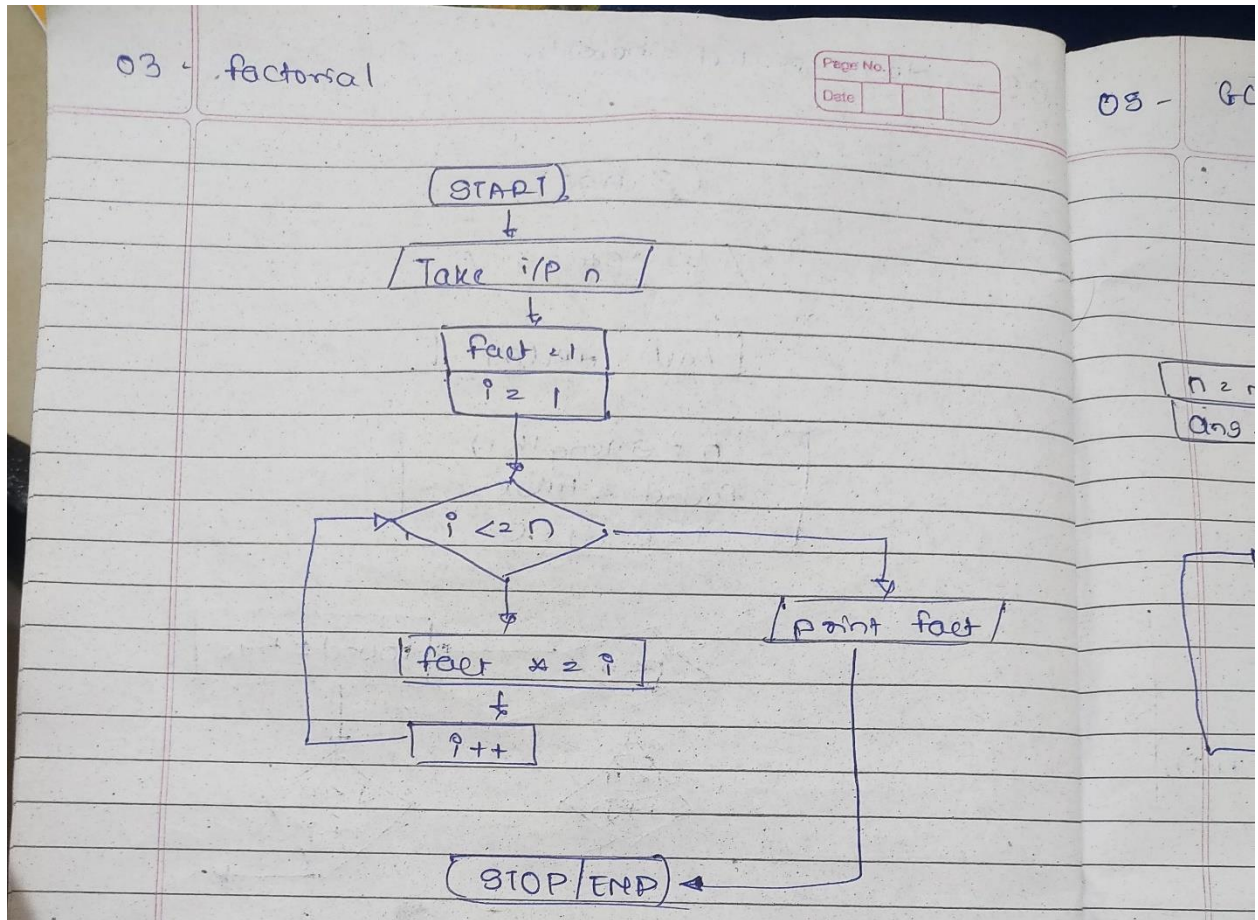 03 - factorial
Page No.
Date
START
Take i/p n
fact = 1
i = 1
i <= n
fact *= i
i++
print fact
STOP/END
05 - GC
n =
ans